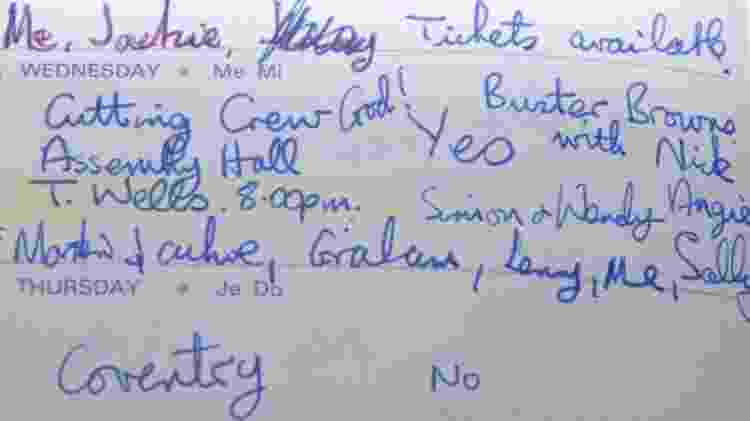 Me, Jackie, Tickets available.
WEDNESDAY • Me Mi
Cutting Crew Good! Buster Browns
Assembly Hall Yes with Nick
T. Wells. 8.00pm. Simon & Wendy Angie
Martin Jackie, Graham, Lenny, Me, Sally
THURSDAY • Je Do
Coventry No